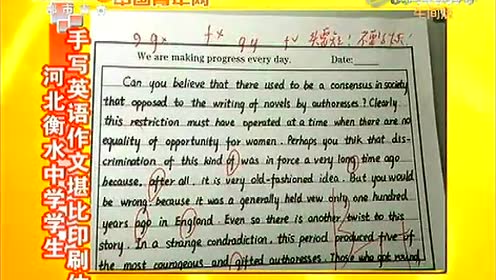 河北衡水中学学生
手写英语作文堪比印刷体
We are making progress every day. Date:
Can you believe that there used to be a consensus in society
that opposed to the writing of novels by authoresses? Clearly
this restriction must have operated at a time when there are no
equality of opportunity for women. Perhaps you thik that dis-
crimination of this kind of was in force a very long time ago
because, after all, it is very old-fashioned idea. But you would
be wrong, because it was a generally held vew only one hundred
years ago in England. Even so there is another twist to this
story. In a strange condradiction, this period produced five of
the most courageous and gifted authoresses. Those who got round